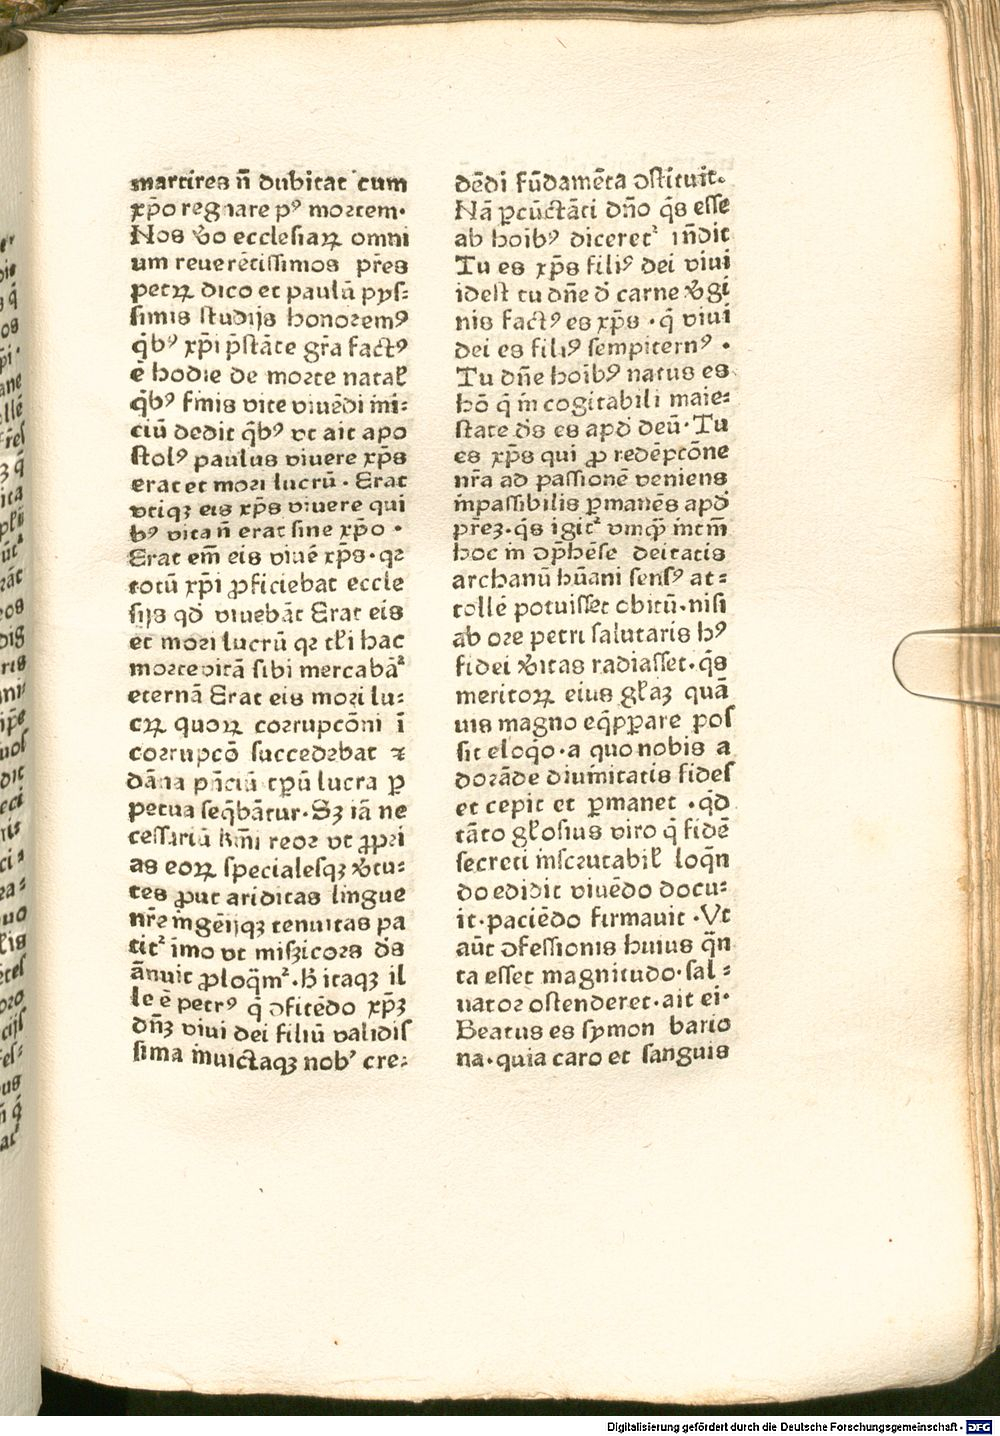 martires n̄ dubitat cum
xp̄o regnare pꝰ moꝛtem·
Nos v̾o ecclesiaꝝ omni
um reuerētissimos pr̄es
petꝝ dico et paulū pys⸗
simis studijs honoꝛemꝰ
q̄bꝰ xp̄i p̄stāte gr̄a factꝰ
ē hodie de moꝛte natal̄
q̄bꝰ finis vite viuēdi ini⸗
ciū dedit q̄bꝰ vt ait apo
stolꝰ paulus viuere xp̄s
erat et moꝛi lucrū· Erat
vtiqꝫ eis xp̄s viuere qui
bꝰ vita n̄ erat sine xp̄o ·
Erat em̄ eis viuē xp̄s·qꝛ
totū xp̄i ꝓficiebat eccle
sijs qd̄ viuebāt Erat eis
et moꝛi lucrū qꝛ tl̄i hac
moꝛte vitā sibi mercabāᷣ
eternā Erat eis moꝛi lu⸗
cꝝ quoꝝ coꝛrupcōni ī
coꝛrupcō succedebat ⁊
dāna pn̄ciū tp̄ū lucra ꝑ
petua seq̄bātur·Sꝫ iā ne
cessariū km̄i reoꝛ vt ꝓpꝛi
as eoꝝ specialesqꝫ v̾tu⸗
tes ꝓut ariditas lingue
nr̄e ingēijqꝫ tenuitas pa
titᷣ īmo vt misꝫicoꝛs ds̄
ānuit ꝓloq̄mᷣ·H̄ itaqꝫ il
le ē petrꝰ q̄ ꝯfitēdo xp̄ꝫ
dn̄ꝫ viui dei filiū validis
sima inuictaqꝫ nobꝰ cre⸗
dēdi fūdamēta ꝯstituit·
Nā ꝑcūctāti dn̄o q̄s esse
ab hoibꝰ diceretᷣ in̄dit
Tu es xp̄s filiꝰ dei viui
idest tu dn̄e d̄ carne v̾gi
nis factꝰ es xp̄s ·q̄ viui
dei es filiꝰ sempiternꝰ ·
Tu dn̄e hoībꝰ natus es
hō q̄ in cogitabili maie⸗
state ds̄ es apd̄ deū·Tu
es xp̄s qui ꝓ redēpcōne
nr̄a ad passionē veniens
inpassibilis ꝑmanēs apd̄
pr̄eꝫ·q̄s igitᷣ vmq̄ intm̄
hoc in ꝯp̄hēse deitatis
archanū hūani sensꝰ at⸗
tollē potuisset obitū·nisi
ab oꝛe petri salutaris hꝰ
fidei v̾itas radiasset·q̄s
meritoꝝ eius gl̄aꝫ quā
uis magno eq̄ꝑpare pos
sit eloq̄o·a quo nobis a
doꝛāde diuinitatis fides
et cepit et ꝑmanet ·qd̄
tāto gl̄osius viro q̄ fidē
secreti inscrutabil̄ loq̄n
do edidit viuēdo docu⸗
it·paciēdo firmauit ·Vt
aūt ꝯfessionis huius q̄n
ta esset magnitudo·sal⸗
uatoꝛ ostenderet·ait ei·
Beatus es symon bario
na·quia caro et sanguis
Digitalisierung gefördert durch die Deutsche Forschungsgemeinschaft · DFG